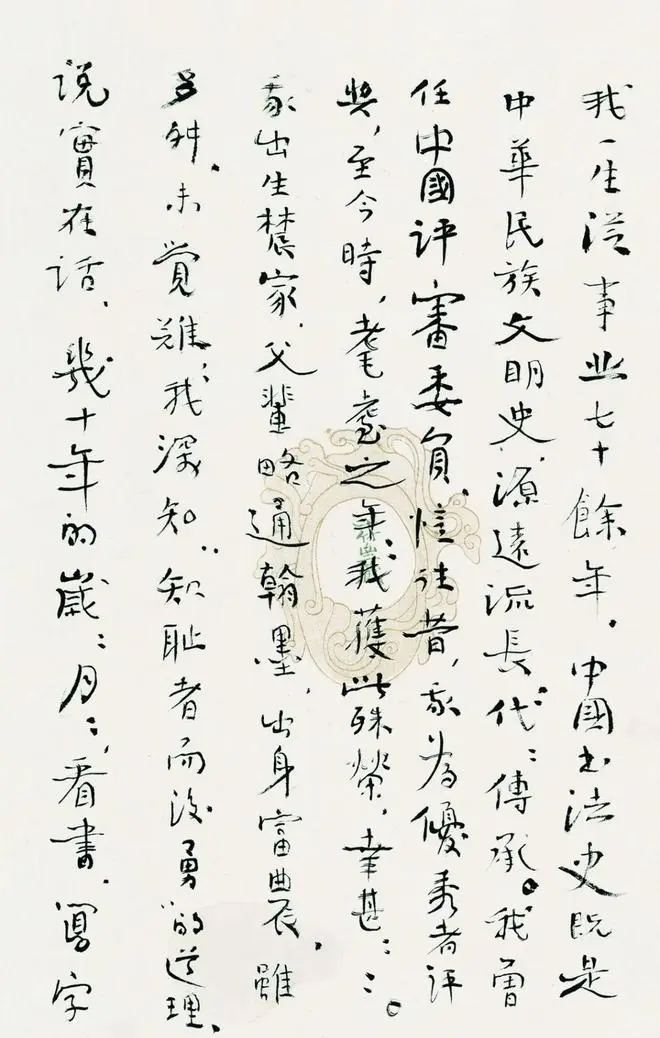 我一生從事业七十餘年。中國书法史既是
中華民族文明史,源遠流長,代〻傳承。我曾
任中國评審委員,憶往昔,我為優秀者评
奖,至今時,耄耋之年,我獲此殊榮,幸甚〻〻。
我出生農家,父輩略通翰墨,出身富農,雖
多舛,未覺難;我深知“知耻者而後勇”的道理,
说實在话,幾十年的歲〻月〻,看書,寫字